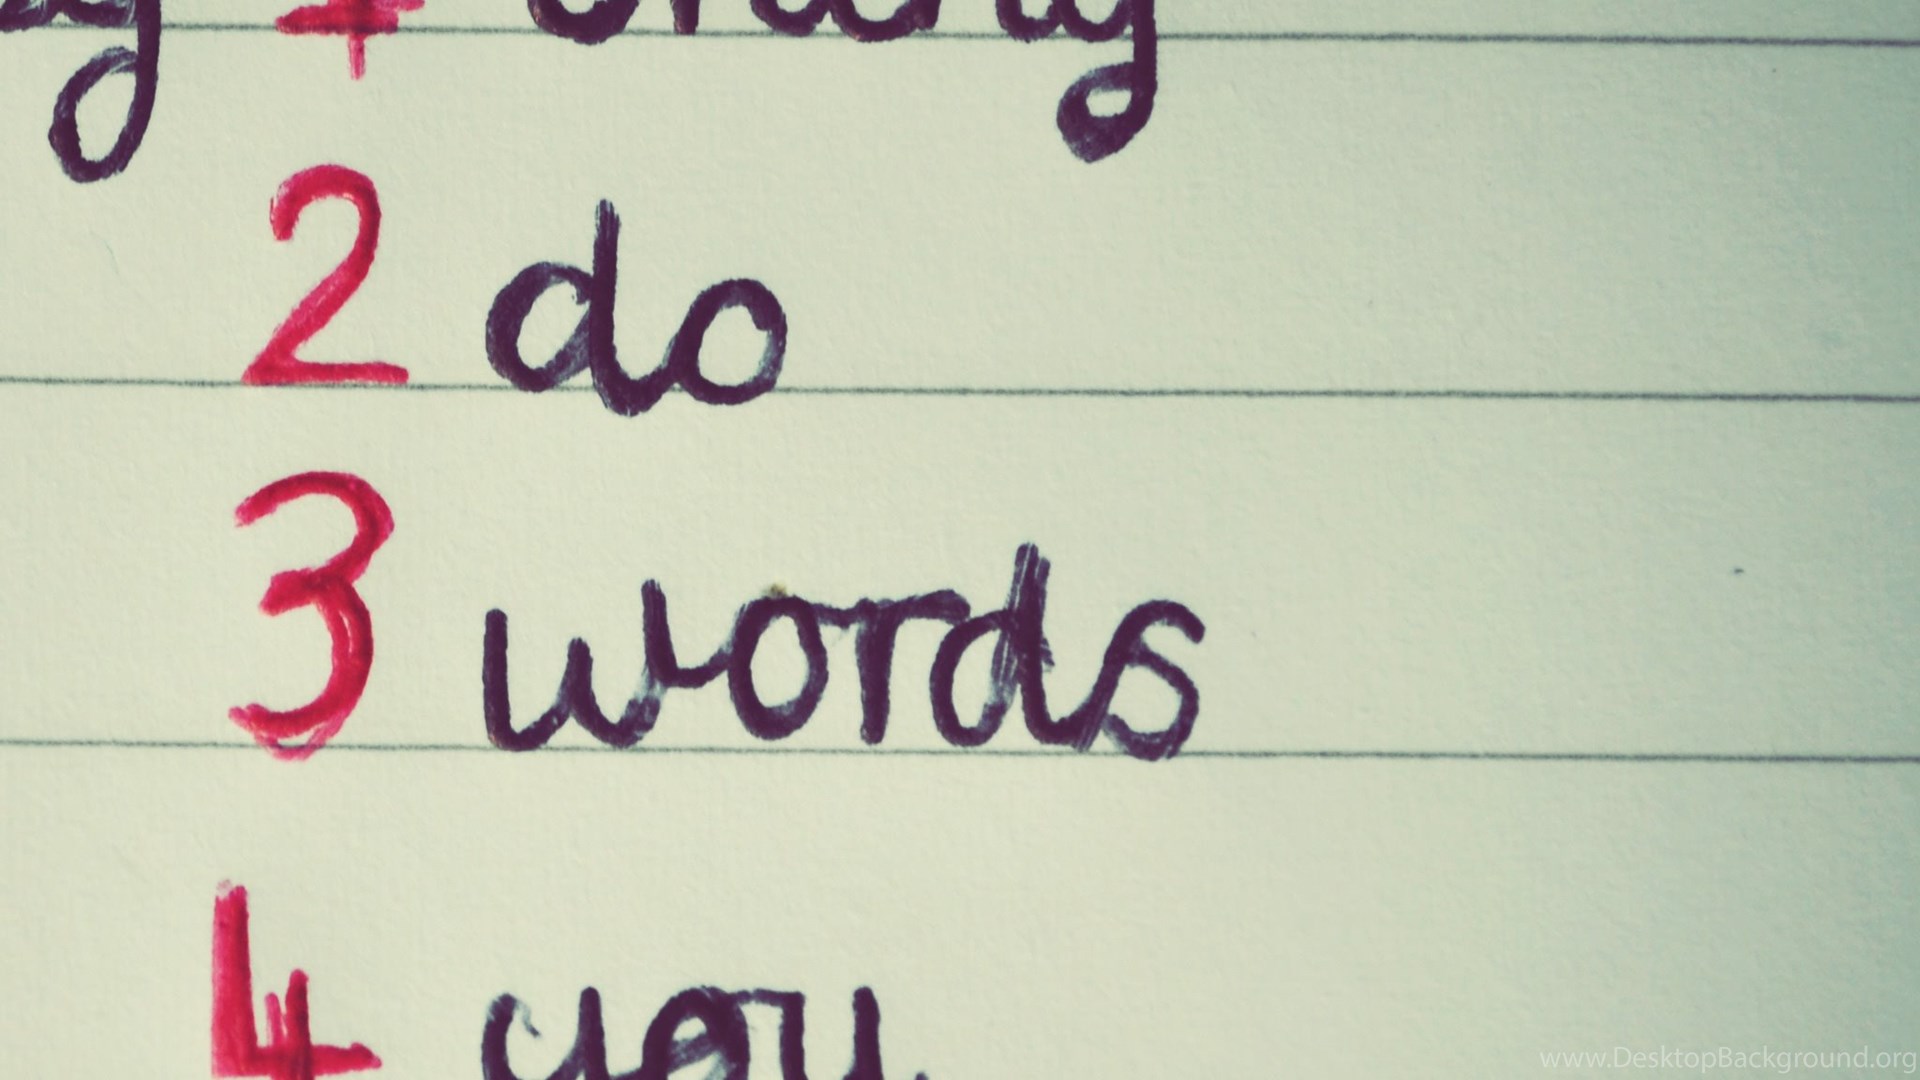 2 do
3 words
4 you
www.DesktopBackground.org